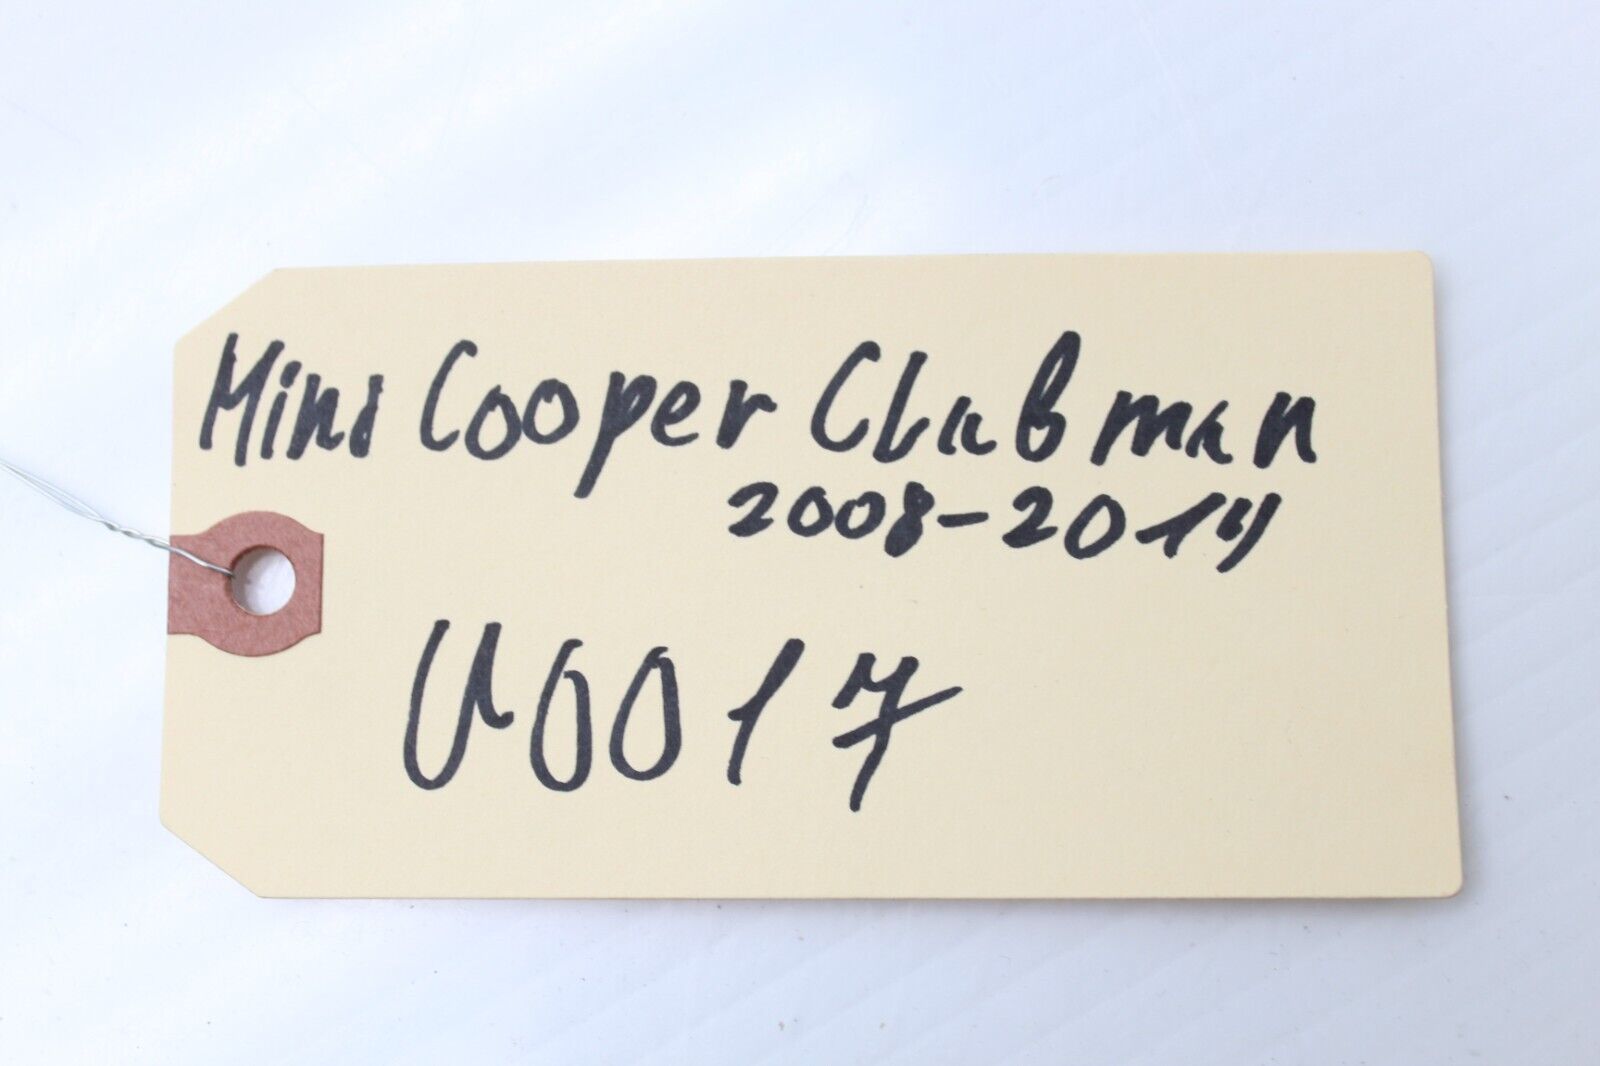 Mini Cooper Clubman
2008-2014
U0017